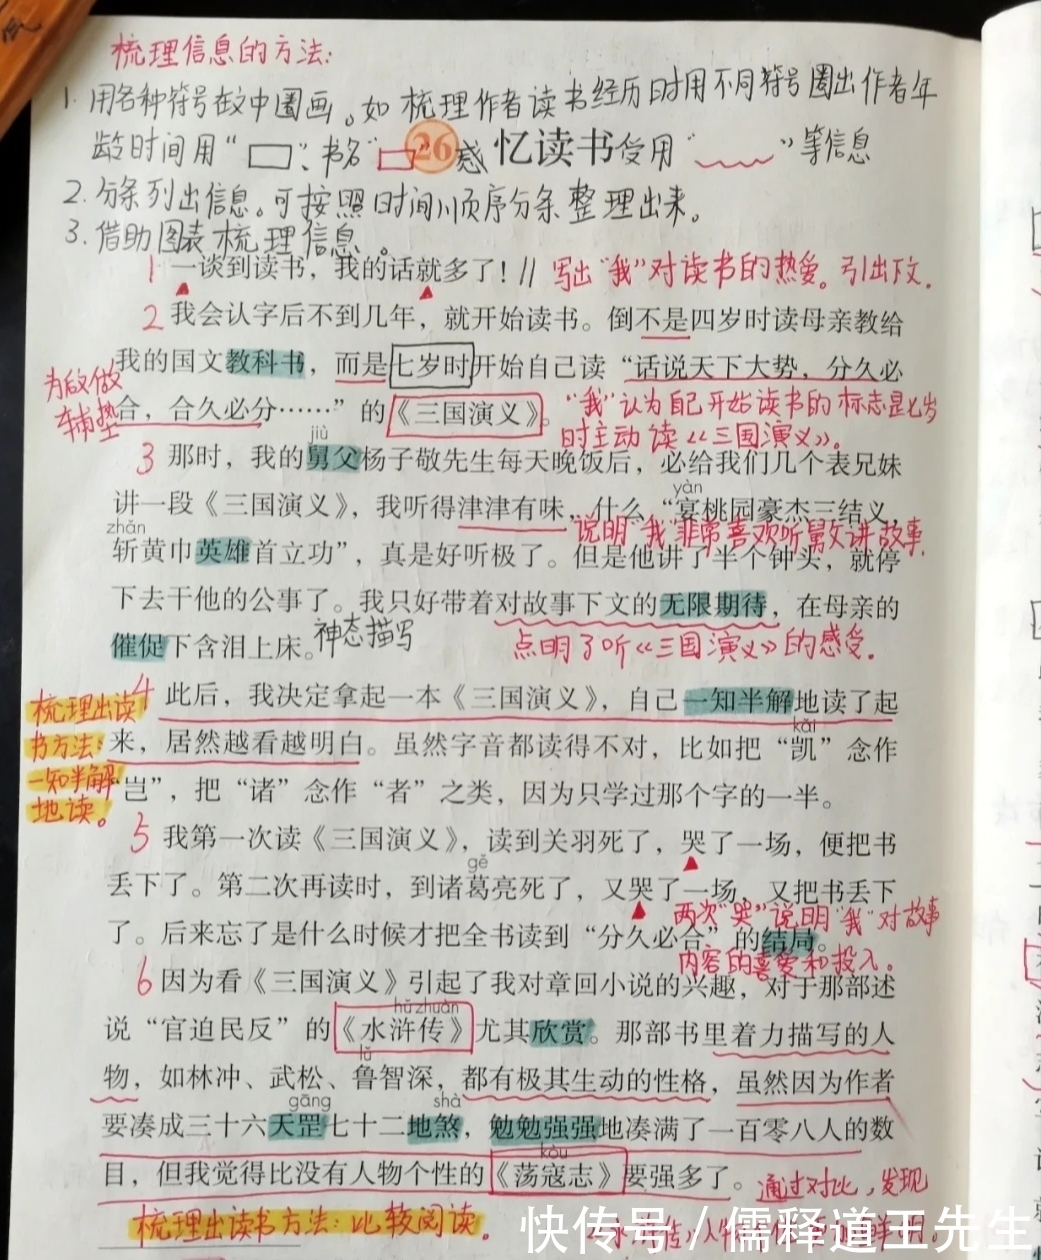 梳理信息的方法:
1. 用各种符号在文中圈画。如梳理作者读书经历时用不同符号圈出作者年
龄时间用“□”、书名“□”感受用“﹏﹏”等信息
26 忆读书
2. 分条列出信息。可按照时间顺序分条整理出来。
3. 借助图表梳理信息。
1 一谈到读书，我的话就多了！// 写出“我”对读书的热爱。引出下文.
2 我会认字后不到几年，就开始读书。倒不是四岁时读母亲教给
我的国文教科书，而是七岁时开始自己读“话说天下大势，分久必
为后文做
铺垫
合，合久必分……”的《三国演义》。
“我”认为自己开始读书的标志是七岁
时主动读《三国演义》。
jiù
3 那时，我的舅父杨子敬先生每天晚饭后，必给我们几个表兄妹
yàn
讲一段《三国演义》，我听得津津有味，什么“宴桃园豪杰三结义，
说明“我”非常喜欢听舅父讲故事.
zhǎn
斩黄巾英雄首立功”，真是好听极了。但是他讲了半个钟头，就停
下去干他的公事了。我只好带着对故事下文的无限期待，在母亲的
催促下含泪上床。神态描写
点明了听《三国演义》的感受.
4 此后，我决定拿起一本《三国演义》，自己一知半解地读了起
梳理出读
书方法:
一知半解
地读。
kǎi
来，居然越看越明白。虽然字音都读得不对，比如把“凯”念作
“岂”，把“诸”念作“者”之类，因为只学过那个字的一半。
5 我第一次读《三国演义》，读到关羽死了，哭了一场，便把书
gě
丢下了。第二次再读时，到诸葛亮死了，又哭了一场，又把书丢下
两次“哭”说明“我”对故事
内容的喜爱和投入。
了。后来忘了是什么时候才把全书读到“分久必合”的结局。
6 因为看《三国演义》引起了我对章回小说的兴趣，对于那部述
hǔ zhuàn
说“官迫民反”的《水浒传》尤其欣赏。那部书里着力描写的人
lǔ
物，如林冲、武松、鲁智深，都有极其生动的性格，虽然因为作者
gāng shà
要凑成三十六天罡七十二地煞，勉勉强强地凑满了一百零八人的数
kòu
目，但我觉得比没有人物个性的《荡寇志》要强多了。
通过对比，发现
梳理出读书方法：比较阅读。
快传号／儒释道王先生